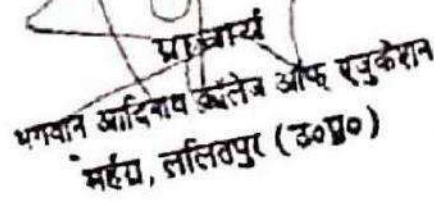 प्राचार्य
भगवान आदिनाथ कॉलेज ऑफ एजुकेशन
महर्रा, ललितपुर (उ०प्र०)